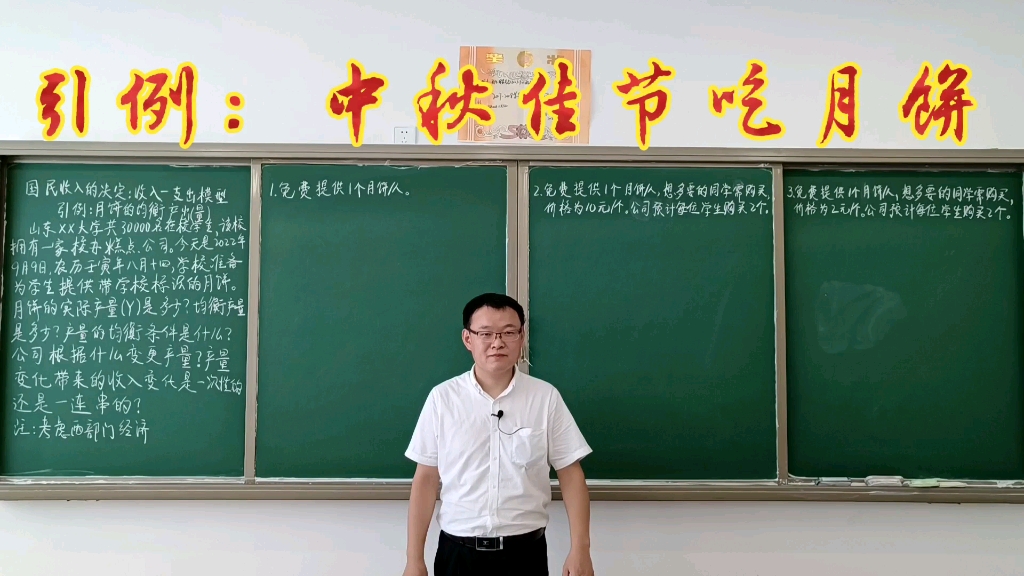 引例：中秋佳节吃月饼
国民收入的决定:收入—支出模型
引例:月饼的均衡产出(量)
山东XX大学共30000名在校学生,该校
拥有一家校办糕点公司。今天是2022年
9月9日,农历壬寅年八月十四,学校准备
为学生提供带学校标识的月饼。
月饼的实际产量(Y)是多少?均衡产量
是多少?产量的均衡条件是什么?
公司根据什么变更产量?产量
变化带来的收入变化是一次性的
还是一连串的?
注:考虑两部门经济
1.免费提供1个月饼/人。
2.免费提供1个月饼/人,想多要的同学需购买,
价格为10元/个。公司预计每位学生购买2个。
3.免费提供1个月饼/人,想多要的同学需购买,
价格为2元/个。公司预计每位学生购买2个。